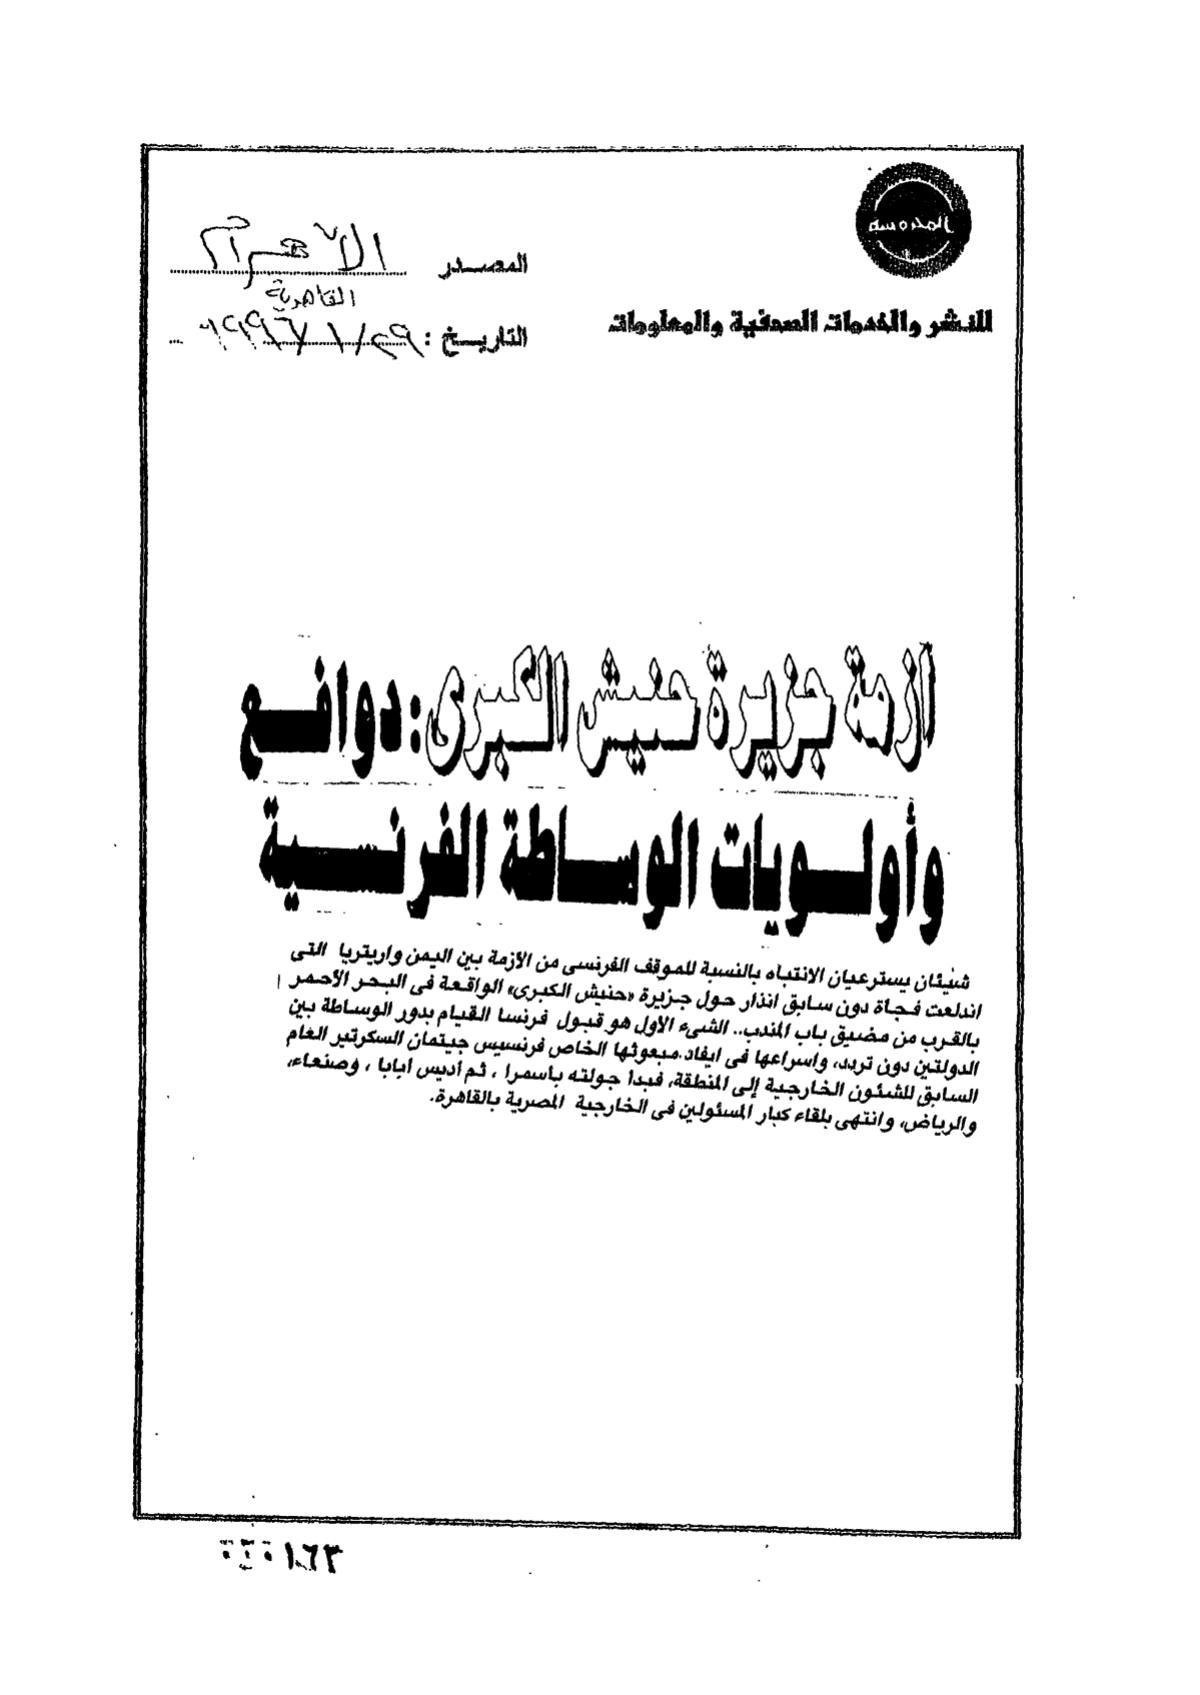 المحروسة
للنشر والخدمات الصحفية والمعلومات
المصدر الأهرام
القاهرية
التاريخ : ٢٩/١/١٩٩٦
أزمة جزيرة حنيش الكبرى: دوافع
وأولويات الوساطة الفرنسية
شيئان يسترعيان الانتباه بالنسبة للموقف الفرنسى من الأزمة بين اليمن واريتريا التى
اندلعت فجأة دون سابق انذار حول جزيرة «حنيش الكبرى» الواقعة فى البحر الأحمر
بالقرب من مضيق باب المندب.. الشىء الأول هو قبول فرنسا القيام بدور الوساطة بين
الدولتين دون تردد، واسراعها فى ايفاد مبعوثها الخاص فرنسيس جيتمان السكرتير العام
السابق للشئون الخارجية إلى المنطقة، فبدأ جولته بأسمرا ، ثم أديس أبابا ، وصنعاء،
والرياض، وانتهى بلقاء كبار المسئولين فى الخارجية المصرية بالقاهرة.